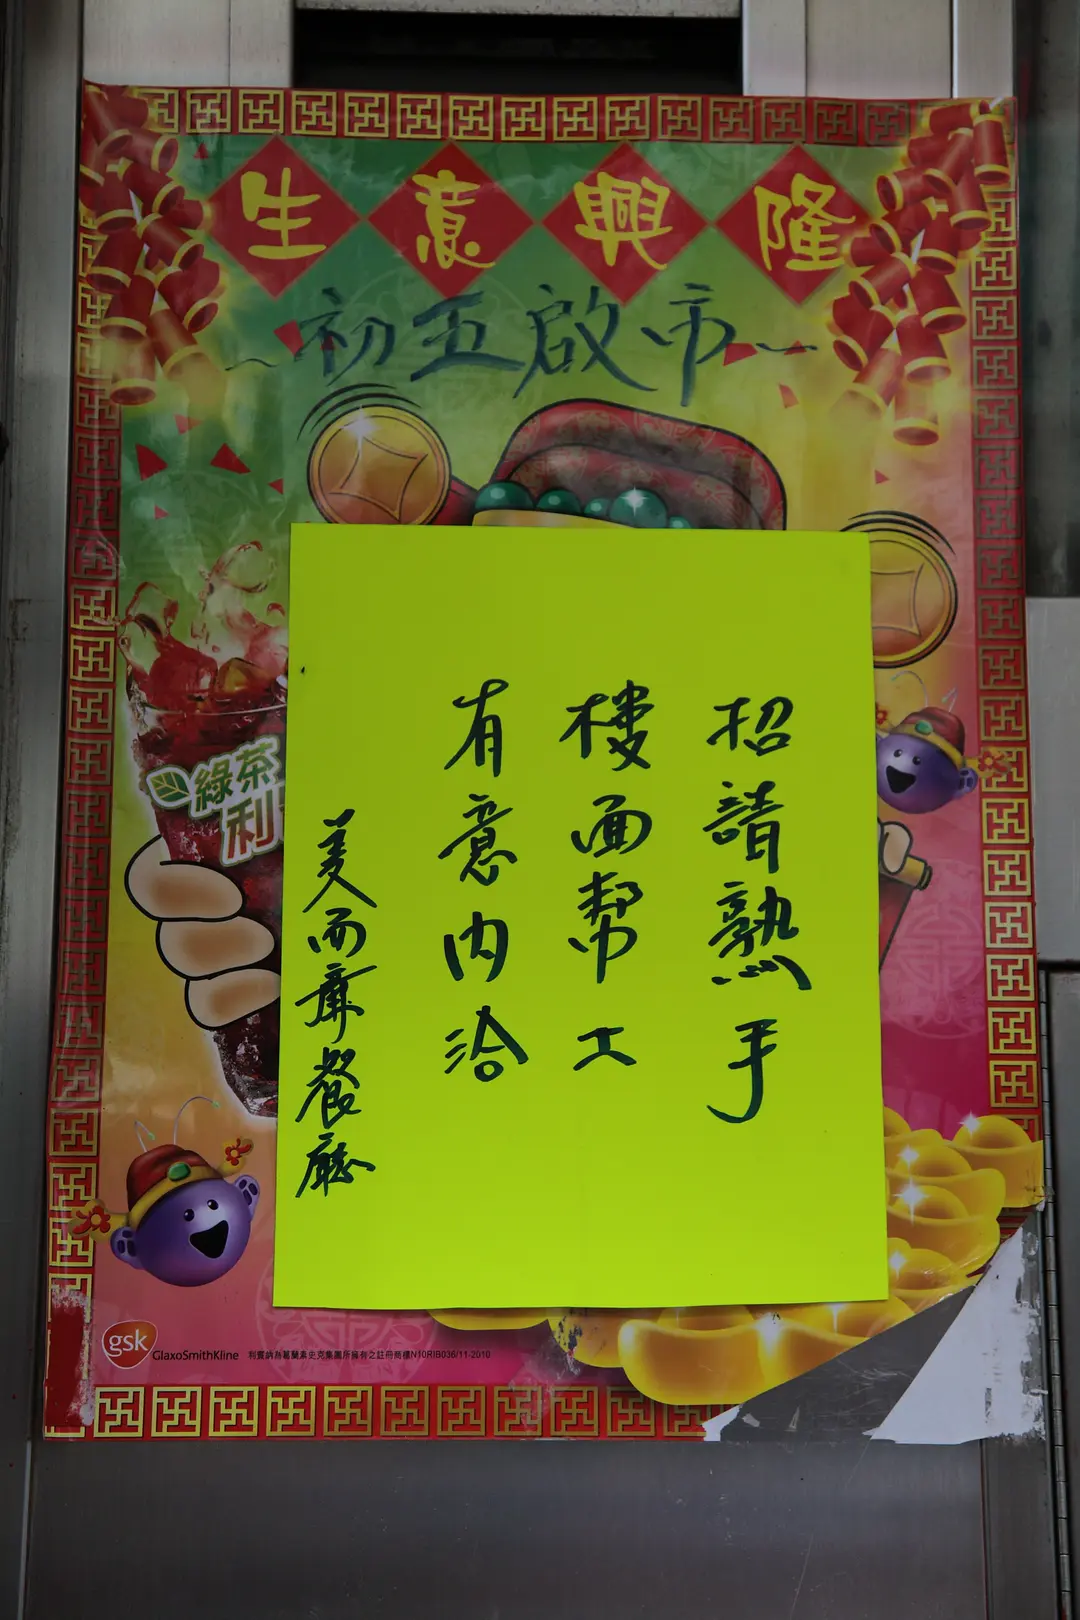 生意興隆
~初五啟市~
招請熟手
樓面幫工
有意內洽
美而廉餐廳
綠茶
利
gsk
GlaxoSmithKline 利賓納為葛蘭素史克集團所擁有之註冊商標N10RIB036/11-2010